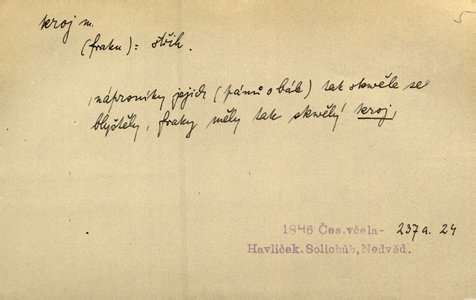 5
kroj m.
(fraku): střih.
náprsníky jejich (pánů o bák) tak skvěle se
blyštěly, fraky měly tak skvělý kroj,
1846 Čes.včela- 237a. 24
Havlíček.Sollohúb,Nedvěd.